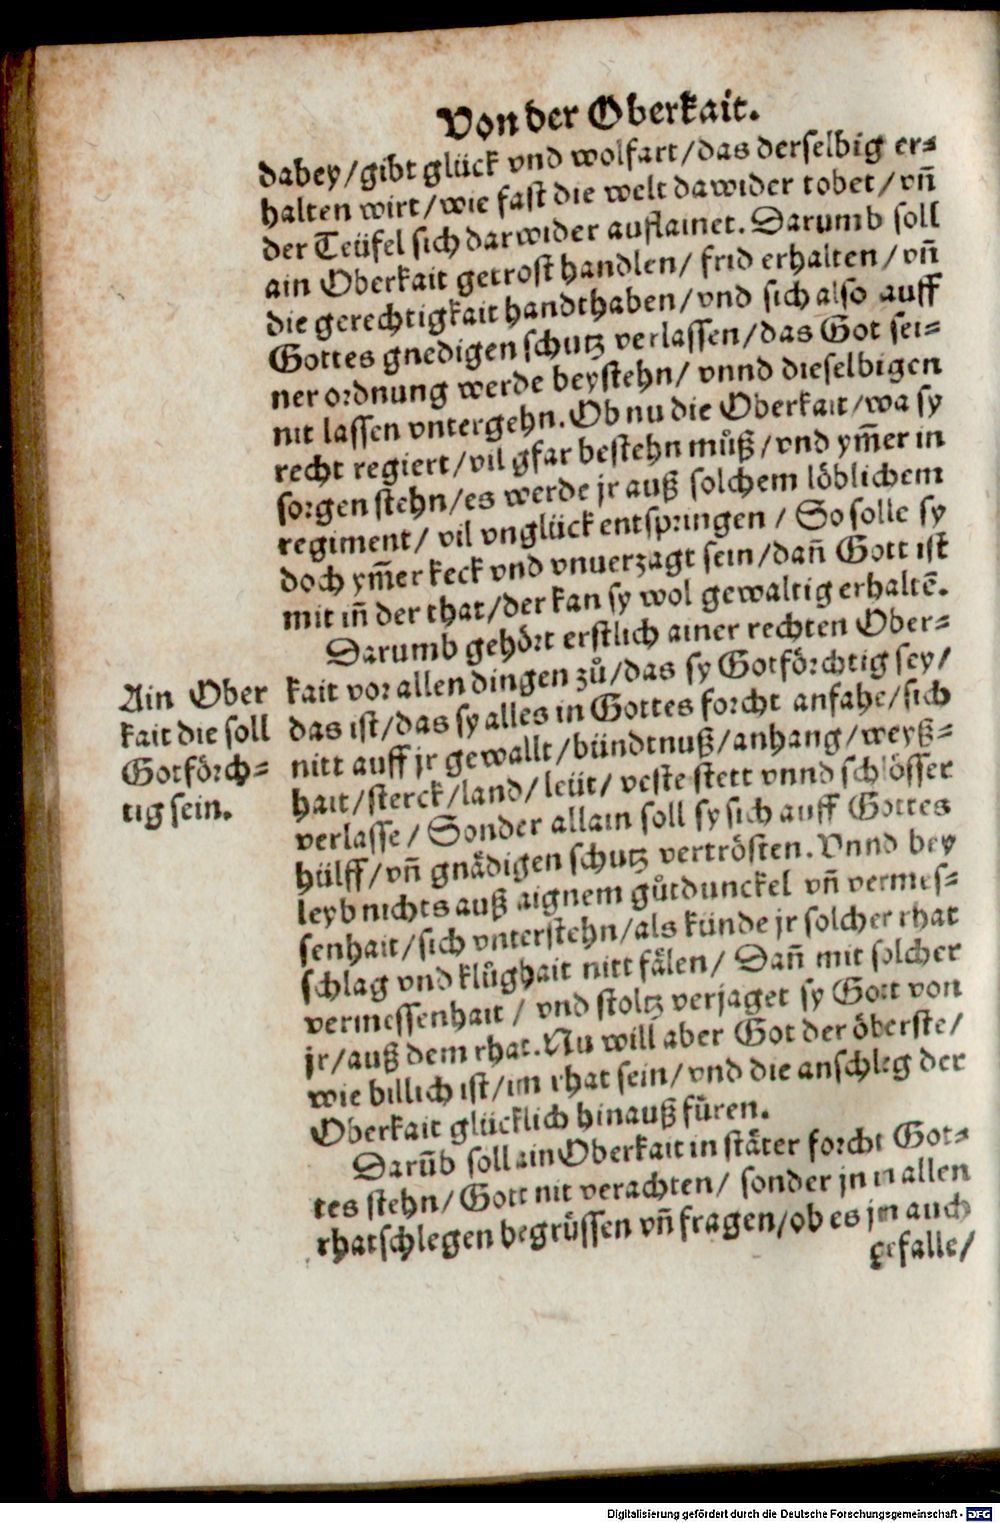 Von der Oberkait.
dabey/gibt glück vnd wolfart/das derselbig er=
halten wirt/wie fast die welt dawider tobet/vñ
der Teüfel sich darwider auflainet. Darumb soll
ain Oberkait getrost handlen/ frid erhalten/vñ
die gerechtigkait handthaben/vnd sich also auff
Gottes gnedigen schutz verlassen/das Got sei=
ner ordnung werde beystehn/ vnnd dieselbigen
nit lassen vntergehn. Ob nu die Oberkait/wa sy
recht regiert/vil gfar bestehn můß/vnd ym̃er in
sorgen stehn/es werde jr auß solchem löblichem
regiment/ vil vnglück entspringen / So solle sy
doch ym̃er keck vnd vnuerzagt sein/dañ Gott ist
mit iñ der that/der kan sy wol gewaltig erhaltẽ.
Darumb gehört erstlich ainer rechten Ober=
kait vor allen dingen zů/das sy Gotförchtig sey/
das ist/das sy alles in Gottes forcht anfahe/sich
nitt auff jr gewallt/bündtnuß/anhang/weyß=
hait/sterck/land/leüt/ veste stett vnnd schlösser
verlasse/ Sonder allain soll sy sich auff Gottes
hülff/vñ gnädigen schutz vertrösten. Vnnd bey
leyb nichts auß aignem gůtdunckel vñ vermes=
senhait/sich vnterstehn/als künde jr solcher rhat
schlag vnd klůghait nitt fälen/ Dañ mit solcher
vermessenhait / vnd stoltz verjaget sy Gott von
jr/auß dem rhat. Nu will aber Got der öberste/
wie billich ist/im rhat sein/vnd die anschleg der
Oberkait glücklich hinauß füren.
Darũb soll ain Oberkait in stäter forcht Got=
tes stehn/Gott nit verachten/ sonder jn in allen
rhatschlegen begrüssen vñ fragen/ob es jm auch
gefalle/
Ain Ober
kait die soll
Gotförch=
tig sein.
Digitalisierung gefördert durch die Deutsche Forschungsgemeinschaft - DFG